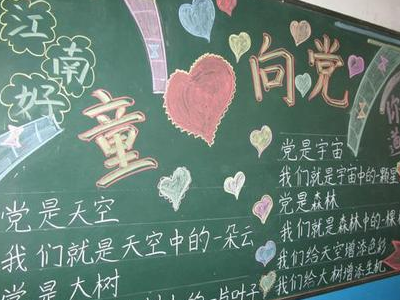 江南好
童心向党
党是天空
我们就是天空中的一朵云
党是大树
片叶子
党是宇宙
我们就是宇宙中的一颗星
党是森林
我们就是森林中的一棵
我们给天空增添色彩
我们给大树增添生机
你
道